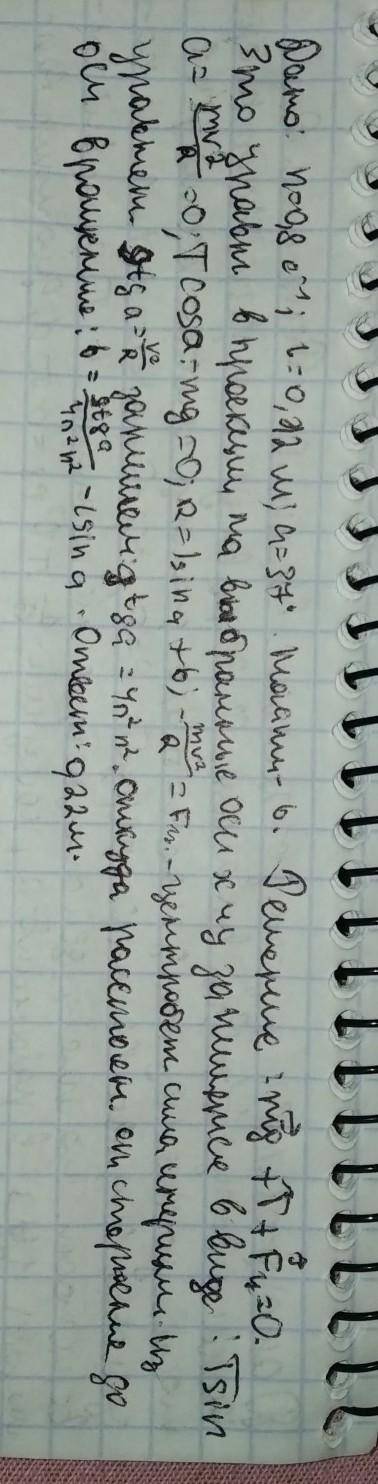 Дано: n=0,8 с⁻¹; l=0,22 м; a=37°. Найти - b. Решение: mg + T + Fц=0.
Это уравн в проекции на выбранные оси x и y запишется в виде: T sin
a= mv²/R =0; T cosa - mg=0; R=l sin a + b; - mv²/R = Fц. - центробеж сила инерции. Из
уравнен gtga = v²/R запишем: gtga = 4п²n². откуда расстоян. от стержние до
оси вращение: b = gtga/4п²n² - l sin a. Ответ: 0,22м.